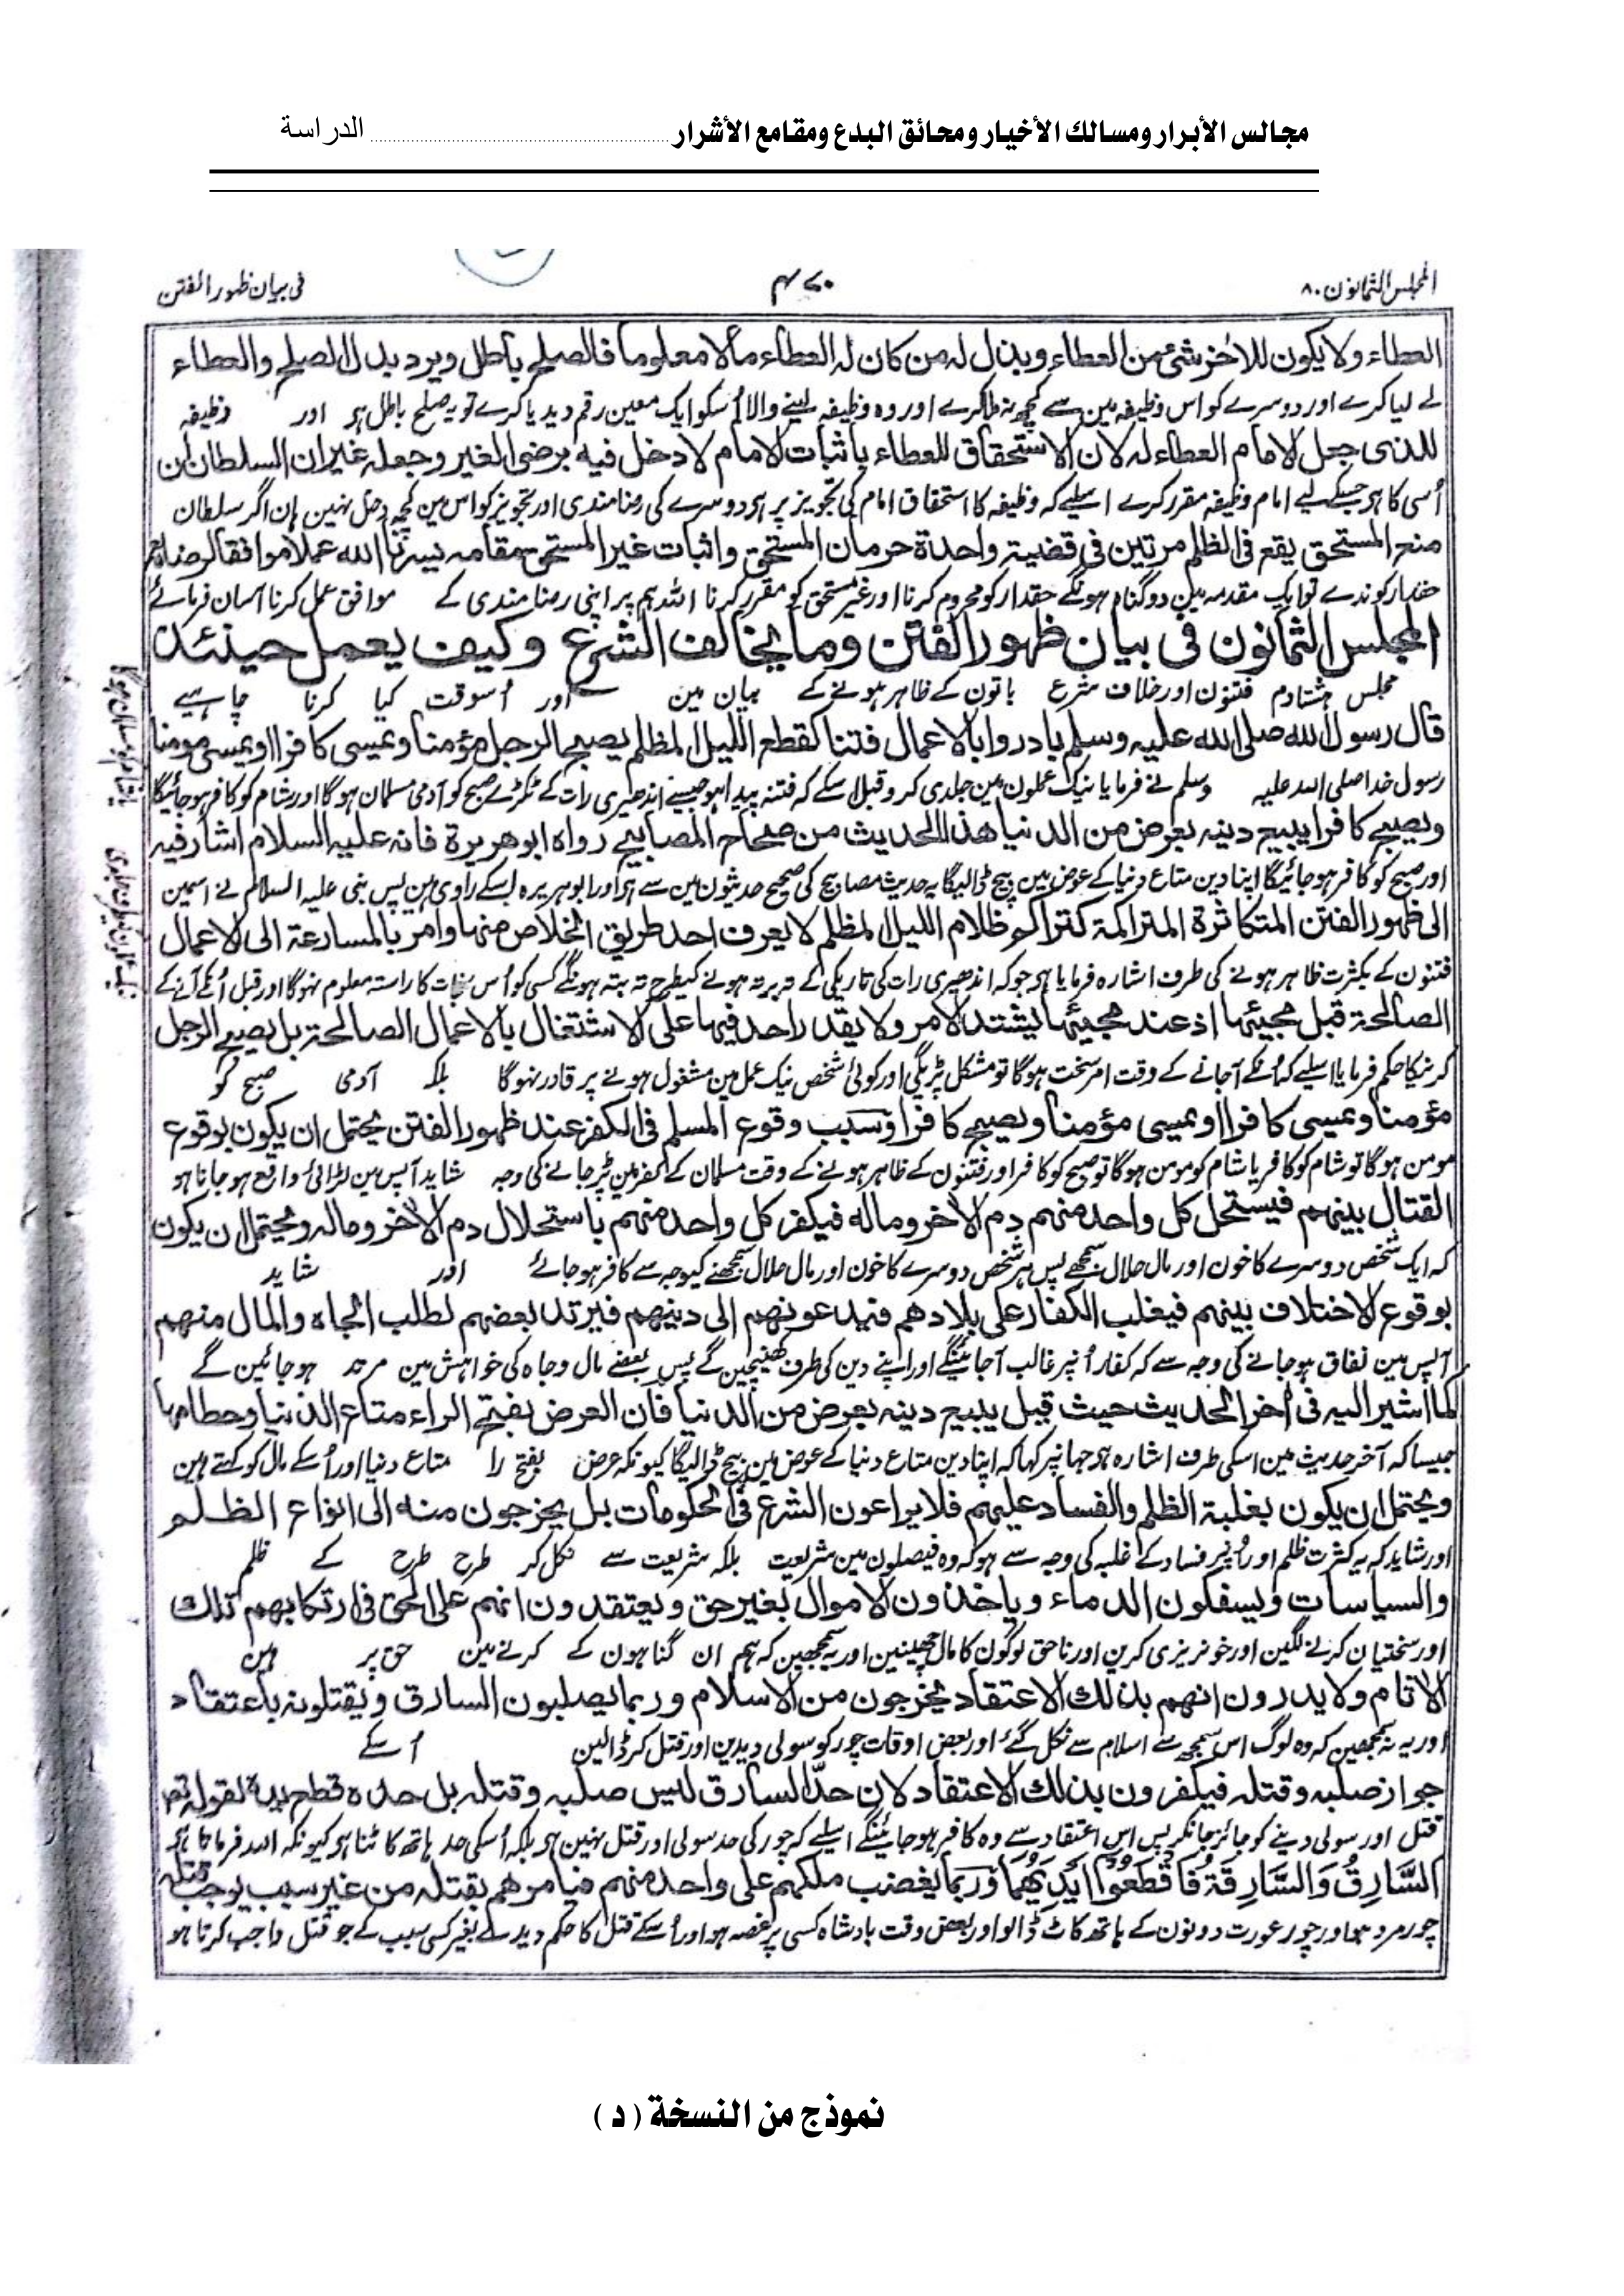 مجالس الأبرار ومسالك الأخيار ومحائق البدع ومقامع الأشرار ........................ الدراسة
المجلس الثمانون ٨٠
٤٧٠
فی بیان ظهور الفتن
العطاء ولا يكون للاخر شئ من العطاء ويبذل له من كان له العطاء مالا معلوما فالصلح باطل ويرد بدل الصلح والعطاء
لے لیا کرے اور دوسرے کو اس وظیفہ مین سے کچھ نہ ملا کرے اور وہ وظیفہ لینے والا اُسکو ایک معین رقم دیدیا کرے تو یہ صلح باطل ہی اور وظیفہ
للذى جعل الامام العطاء له لان الاستحقاق للعطاء باثبات الامام لا دخل فيه برضى الغير وجعله غيران السلطان ان
اُسی کا ہی جسکے لیے امام وظیفہ مقرر کرے اسلیے کہ وظیفہ کا استحقاق امام کی تجویز پر ہی دوسرے کی رضامندی اور تجویز کو اس مین کچھ دخل نہین ہان اگر سلطان
منع المستحق يقع فى الظلم مرتين فى قضية واحدة حرمان المستحق واثبات غير المستحق مقامه يسرنا الله عملا موافقا لرضاه
حقدار کو ندے تو ایک مقدمہ مین دو گناہ ہونگے حقدار کو محروم کرنا اور غیر مستحق کو مقرر کرنا اللہ ہم پر اپنی رضامندی کے موافق عمل کرنا آسان فرمائے
المجلس الثمانون فى بيان ظهور الفتن وما يخالف الشرع وكيف يعمل حينئذ
مجلس ہشتادم فتنون اور خلاف شرع باتون کے ظاہر ہونے کے بیان مین اور اُسوقت کیا کرنا چاہیے
قال رسول الله صلى الله عليه وسلم بادروا بالاعمال فتنا كقطع الليل المظلم يصبح الرجل مؤمنا ويمسى كافرا او يمسى مومنا
رسول خدا صلی اللہ علیہ وسلم نے فرمایا نیک عملون مین جلدی کرو قبل اسکے کہ فتنہ پیدا ہو جیسے اندھیری رات کے ٹکڑے صبح کو آدمی مسلمان ہوگا اور شام کو کافر ہو جائیگا
ويصبح كافرا يبيع دينه بعرض من الدنيا هذا الحديث من صحاح المصابيح رواه ابو هريرة فانه عليه السلام اشار فيه
اور صبح کو کافر ہو جائیگا اپنا دین متاع دنیا کے عوض مین بیچ ڈالیگا یہ حدیث مصابیح کی صحیح حدیثون مین سے ہی اور ابو ہریرہ اسکے راوی ہین پس نبی علیہ السلام نے اسمین
الى ظهور الفتن المتكاثرة المتراكمة كتراكم ظلام الليل المظلم لا يعرف احد طريق الخلاص منها وامر بالمسارعة الى الاعمال
فتنون کے بکثرت ظاہر ہونے کی طرف اشارہ فرمایا ہی جو کہ اندھیری رات کی تاریکی کے تہ برتہ ہونے کیطرح تہ بتہ ہونگے کسی کو اُس نجات کا راستہ معلوم نہوگا اور قبل اُنکے آنے کے
الصالحة قبل مجيئها اذ عند مجيئها يشتد الامر ولا يقدر احد فيها على الاشتغال بالاعمال الصالحة بل يصبح الرجل
کرنیکا حکم فرمایا اسلیے کہ اُنکے آجانے کے وقت امر سخت ہوگا تو مشکل پڑیگی اور کوئی شخص نیک عمل مین مشغول ہونے پر قادر نہوگا بلکہ آدمی صبح کو
مؤمنا ويمسى كافرا او يمسى مؤمنا ويصبح كافرا وسبب وقوع المسلم فى الكفر عند ظهور الفتن يحتمل ان يكون بوقوع
مومن ہوگا تو شام کو کافر یا شام کو مومن ہوگا تو صبح کو کافر اور فتنون کے ظاہر ہونے کے وقت مسلمان کے کفر مین پڑجانے کی وجہ شاید آپس مین لڑائی واقع ہو جاتا ہو
القتال بينهم فيستحل كل واحد منهم دم الاخر وماله فيكفر كل واحد منهم باستحلال دم الاخر وماله ويحتمل ان يكون
کہ ایک شخص دوسرے کا خون اور مال حلال سمجھے پس ہر شخص دوسرے کا خون اور مال حلال سمجھنے کیوجہ سے کافر ہو جائے اور شاید
بوقوع الاختلاف بينهم فيغلب الكفار على بلادهم فيدعونهم الى دينهم فيرتد بعضهم لطلب الجاه والمال منهم
آپس مین نفاق ہوجانے کی وجہ سے کہ کفار اُنپر غالب آجائینگے اور اپنے دین کی طرف کھینچین گے پس بعضے مال و جاہ کی خواہش مین مرتد ہوجائین گے
كما اشير اليه فى اخر الحديث حيث قيل يبيع دينه بعرض من الدنيا فان العرض بفتح الراء متاع الدنيا وحطامها
جیسا کہ آخر حدیث مین اسکی طرف اشارہ ہی جہانپر کہا کہ اپنا دین متاع دنیا کے عوض مین بیچ ڈالیگا کیونکہ عرض بفتح را متاع دنیا اور اُسکے مال کو کہتے ہین
ويحتمل ان يكون بغلبة الظلم والفساد عليهم فلا يراعون الشرع فى الحكومات بل يخرجون منه الى انواع الظلم
اور شاید کہ یہ کثرت ظلم اور اُنپر فساد کے غلبہ کی وجہ سے ہو کہ وہ فیصلون مین شریعت بلکہ شریعت سے نکل کر طرح طرح کے ظلم
والسياسات ويسفكون الدماء وياخذون الاموال بغير حق ويعتقدون انهم على الحق فى ارتكابهم تلك
اور سختیان کرنے لگین اور خونریزی کرین اور ناحق لوگون کا مال چھینین اور یہ سمجھین کہ ہم ان گناہون کے کرنے مین حق پر ہین
الاثام ولا يدرون انهم بذلك الاعتقاد يخرجون من الاسلام وربما يصلبون السارق ويقتلونه باعتقاد
اور یہ نہ سمجھین کہ وہ لوگ اس سمجھ سے اسلام سے نکل گئے اور بعض اوقات چور کو سولی دیدین اور قتل کر ڈالین اُسکے
جواز صلبه وقتله فيكفرون بذلك الاعتقاد لان حد السارق ليس صلبه وقتله بل حده قطع يده لقوله تعـ
قتل اور سولی دینے کو جائز جانکر پس اس اعتقاد سے وہ کافر ہو جائینگے اسلیے کہ چور کی حد سولی اور قتل نہین ہی بلکہ اُسکی حد ہاتھ کاٹنا ہی کیونکہ اللہ فرماتا ہی
السَّارِقُ وَالسَّارِقَةُ فَاقْطَعُوْا اَيْدِيَهُمَا وربما يغضب ملكهم على واحد منهم فيامرهم بقتله من غير سبب يوجب قتله
چور مرد ہو اور چور عورت دونون کے ہاتھ کاٹ ڈالو اور بعض وقت بادشاہ کسی پر غصہ ہو اور اُسکے قتل کا حکم دیدے بغیر کسی سبب کے جو قتل واجب کرتا ہو
نموذج من النسخة ( د )